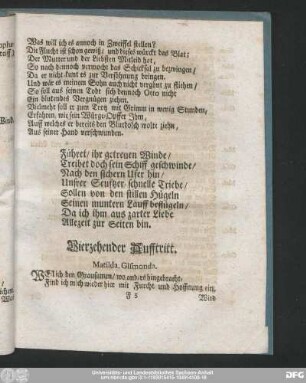 Was will ich es annoch in Zweiffel stellen?
Die Flucht ist schon gewiß; und dieses würckt das Blat;
Der Mutter und der Liebsten Mitleid hat,
So noch dennoch vermocht das Schicksal zu bezwingen/
Da er nicht kunt es zur Versöhnung bringen.
Und wär es meinem Sohn auch nicht vergönt zu fliehen/
So soll aus seinen Todt sich dennoch Otto nicht
Ein blutendes Vergnügen ziehen.
Vielmehr soll er zum Tort mit Grimm in wenig Stunden,
Erfahren, wie sein Würge-Opffer Ihm,
Auff welches er bereits den Blutdolch wolte ziehn,
Aus seiner Hand verschwunden.
Führet/ ihr getreuen Winde/
Treibet doch sein Schiff geschwinde/
Nach den sichern Ufer hin/
Unsrer Seufzer schnelle Triebe/
Sollen von den stillen Hügeln
Seinen muntern Lauff beflügeln/
Da ich ihm aus zarter Liebe
Allezeit zur Seiten bin.
Vierzehender Aufftritt.
Matilda. Gismonda.
Find ich mich wieder hier mit Furcht und Hoffnung ein,
F 5